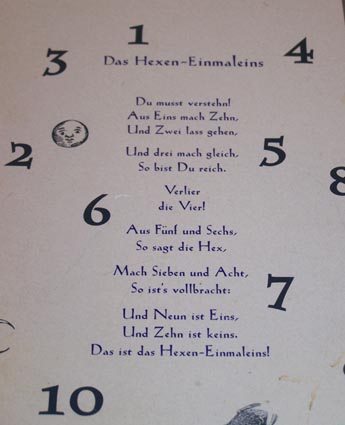 1
3
4
Das Hexen-Einmaleins
Du musst verstehn!
Aus Eins mach Zehn,
Und Zwei lass gehen,
2
Und drei mach gleich,
So bist Du reich.
5
8
Verlier
die Vier!
6
Aus Fünf und Sechs,
So sagt die Hex,
Mach Sieben und Acht,
So ist's vollbracht:
7
Und Neun ist Eins,
Und Zehn ist keins.
Das ist das Hexen-Einmaleins!
10